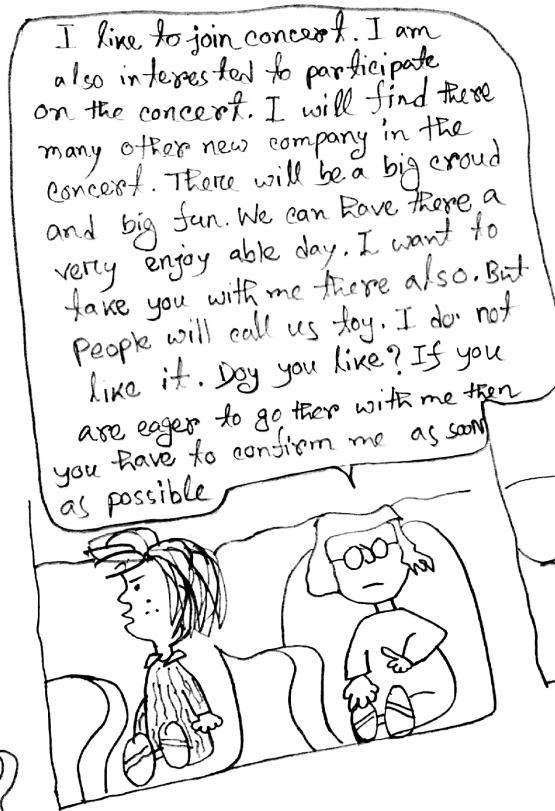 I like to join concert. I am
also interested to participate
on the concert. I will find there
many other new company in the
concert. There will be a big croud
and big fun. We can have there a
very enjoy able day. I want to
take you with me there also. But
People will call us toy. I do not
like it. Doy you like? If you
are eager to go ther with me then
you have to confirm me as soon
as possible